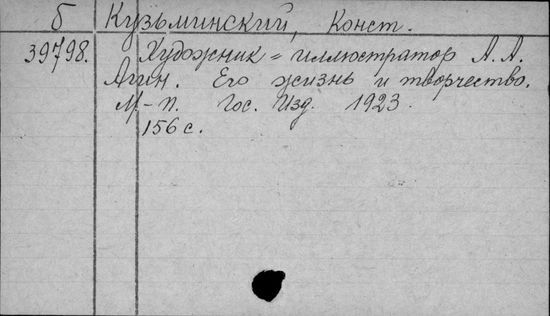 б Кузьминский, Конст.
39798. Художник-иллюстратор А. А.
Агин. Его жизнь и творчество.
М-П. Гос. Изд. 1923.
156 с.